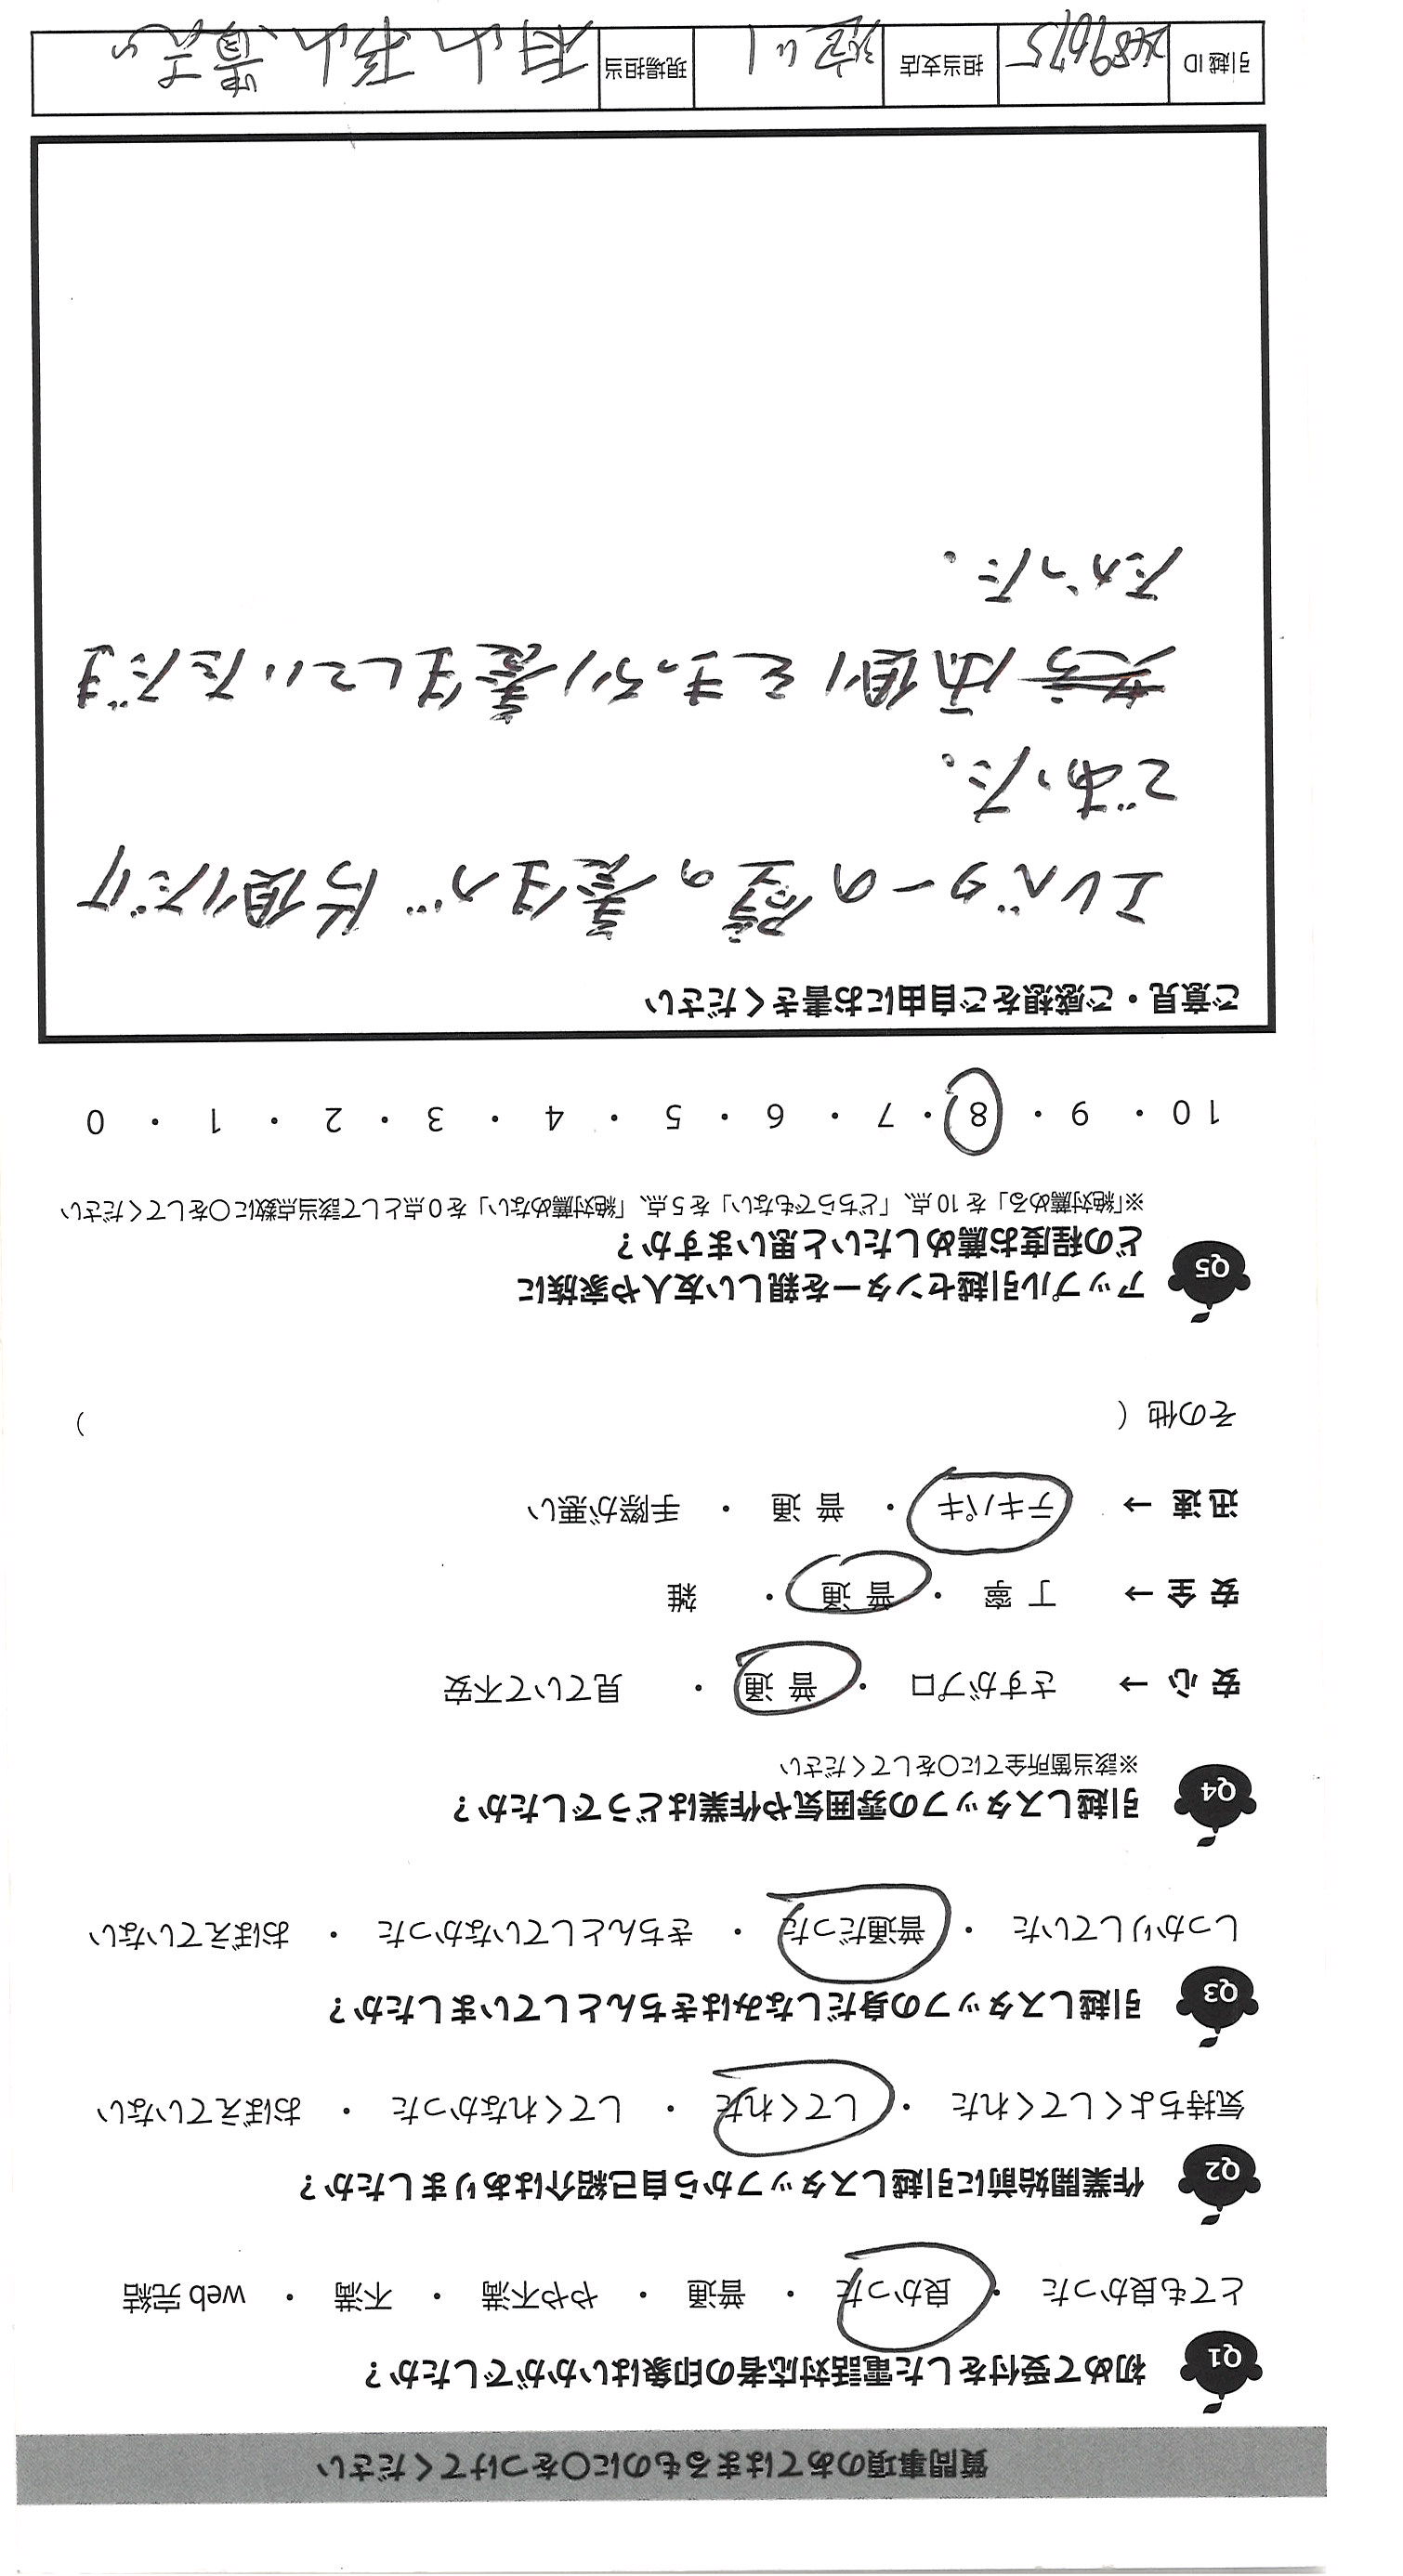 質問事項のあてはまるものに〇をつけてください
Q1 初めて受付をした電話対応者の印象はいかがでしたか？
とても良かった ・ 良かった ・ 普通 ・ やや不満 ・ 不満 ・ web 完結
Q2 作業開始前に引越しスタッフから自己紹介はありましたか？
気持ちよくしてくれた ・ してくれた ・ してくれなかった ・ おぼえていない
Q3 引越しスタッフの身だしなみはきちんとしていましたか？
しっかりしていた ・ 普通だった ・ きちんとしていなかった ・ おぼえていない
Q4 引越しスタッフの雰囲気や作業はどうでしたか？
※該当箇所全てに〇をしてください
安 心 → さすがプロ ・ 普 通 ・ 見ていて不安
安 全 → 丁 寧 ・ 普 通 ・ 雑
迅 速 → テキパキ ・ 普 通 ・ 手際が悪い
その他 （ ）
Q5 アップル引越センターを親しい友人や家族に
どの程度お薦めしたいと思いますか？
※「絶対薦める」を 10 点、「どちらでもない」を 5 点、「絶対薦めない」を 0 点として該当点数に〇をしてください
10 ・ 9 ・ 8 ・ 7 ・ 6 ・ 5 ・ 4 ・ 3 ・ 2 ・ 1 ・ 0
ご意見・ご感想をご自由にお書きください
エレベターの壁の養生が片側だけ
であった。
両側をきっちり養生していただき
たかった.
引越 ID 2489675 担当支店 現場担当